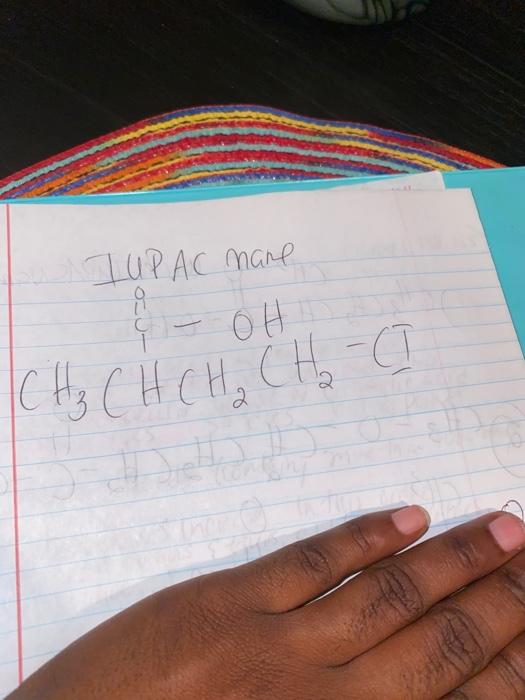 IUPAC name
O
||
C - OH
|
CH₃CHCH₂CH₂-CI